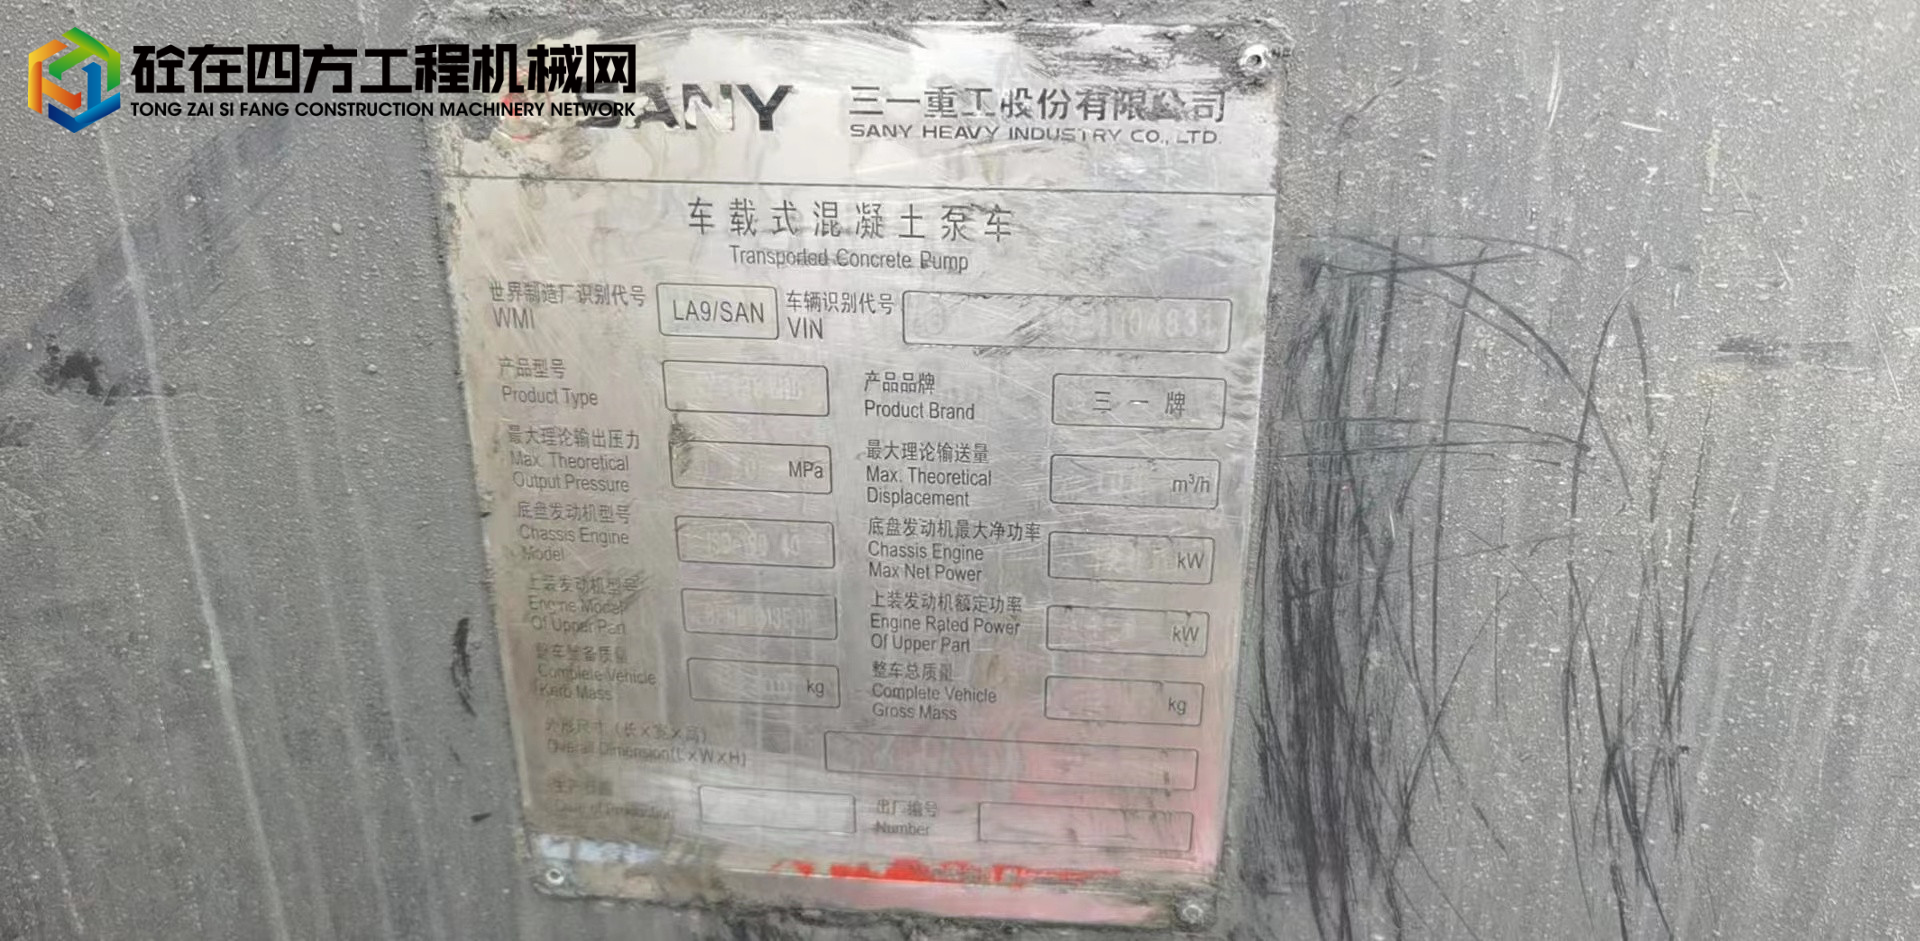 砼在四方工程机械网
TONG ZAI SI FANG CONSTRUCTION MACHINERY NETWORK
SANY
三一重工股份有限公司
SANY HEAVY INDUSTRY CO., LTD.
车载式混凝土泵车
Transported Concrete Pump
世界制造厂识别代号
WMI
LA9/SAN
车辆识别代号
VIN
产品型号
Product Type
产品品牌
Product Brand
三一牌
最大理论输出压力
Max. Theoretical
Output Pressure
MPa
最大理论输送量
Max. Theoretical
Displacement
m³/h
底盘发动机型号
Chassis Engine
Model
底盘发动机最大净功率
Chassis Engine
Max Net Power
kW
上装发动机型号
Engine Model
Of Upper Part
上装发动机额定功率
Engine Rated Power
Of Upper Part
kW
整车整备质量
Complete Vehicle
Kerb Mass
kg
整车总质量
Complete Vehicle
Gross Mass
kg
外形尺寸（长×宽×高）
Overall Dimension(L×W×H)
生产日期
Date of Production
出厂编号
Number